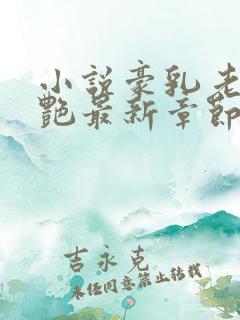 小说豪乳老
艳最新章节
吉永克
未经同意禁止转载